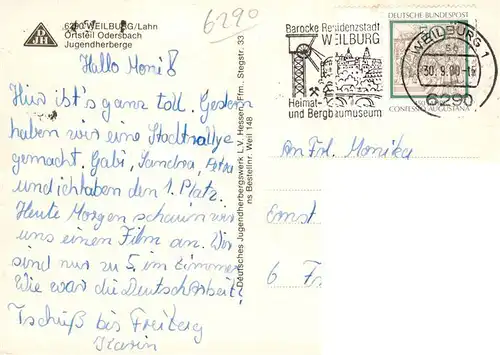 6290 WEILBURG/Lahn
Ortsteil Odersbach
Jugendherberge
6290
Hallo Moni!
Hier ist's ganz toll. Gestern
haben wir eine Stadtrallye
gemacht, Gabi, Sandra, Petra
und ich haben den 1. Platz.
Heute Morgen schauen wir
uns einen Film an. Wir
sind nur zu 5. im Zimmer.
Wie war die Deutscharbeit?
Tschüß bis Freitag
Karin
Deutsches Jugendherbergswerk L.V. Hessen, Ffm., Stegstr. 33
ns Bestellnr. Weil 148
Barocke Residenzstadt
WEILBURG
Heimat-
und Bergbaumuseum
DEUTSCHE BUNDESPOST
CONFESSIO AUGUSTANA
WEILBURG 1
30.9.80
6290
An Frl. Monika
Ernst
6 Fr